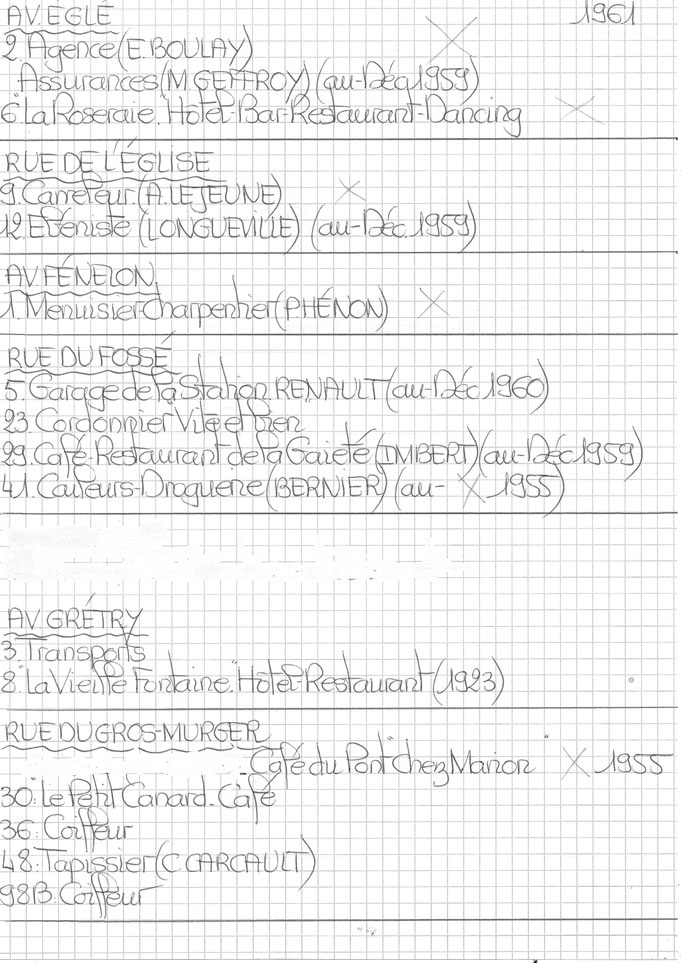 AV. ÉGLÉ 1961
2. Agence (E. BOULAY)
Assurances (M. GEFFROY) (au-Déc. 1959)
6 "La Roseraie." Hôtel-Bar-Restaurant-Dancing
RUE DE L'ÉGLISE
9. Carreleur (A. LEJEUNE)
12. Ebéniste (LONGUEVILLE) (au-Déc. 1959)
AV. FÉNELON.
1. Menuisier-Charpentier (PHÉNON)
RUE DU FOSSÉ
5. Garage de la Station. RENAULT (au-Déc 1960)
23. Cordonnier Vite et bien
29. Café-Restaurant de la Gaieté (IMBERT) (au-Déc 1959)
41. Couleurs-Droguerie (BERNIER) (au- X 1955)
AV. GRÉTRY
3. Transports
8 "La Vieille Fontaine." Hôtel-Restaurant (1923)
RUE DU GROS-MURGER
- Café du Pont "chez Marion" X 1955
30: Le Petit Canard. Café
36: Coiffeur
48: Tapissier (C. CARCAULT)
98B: Coiffeur